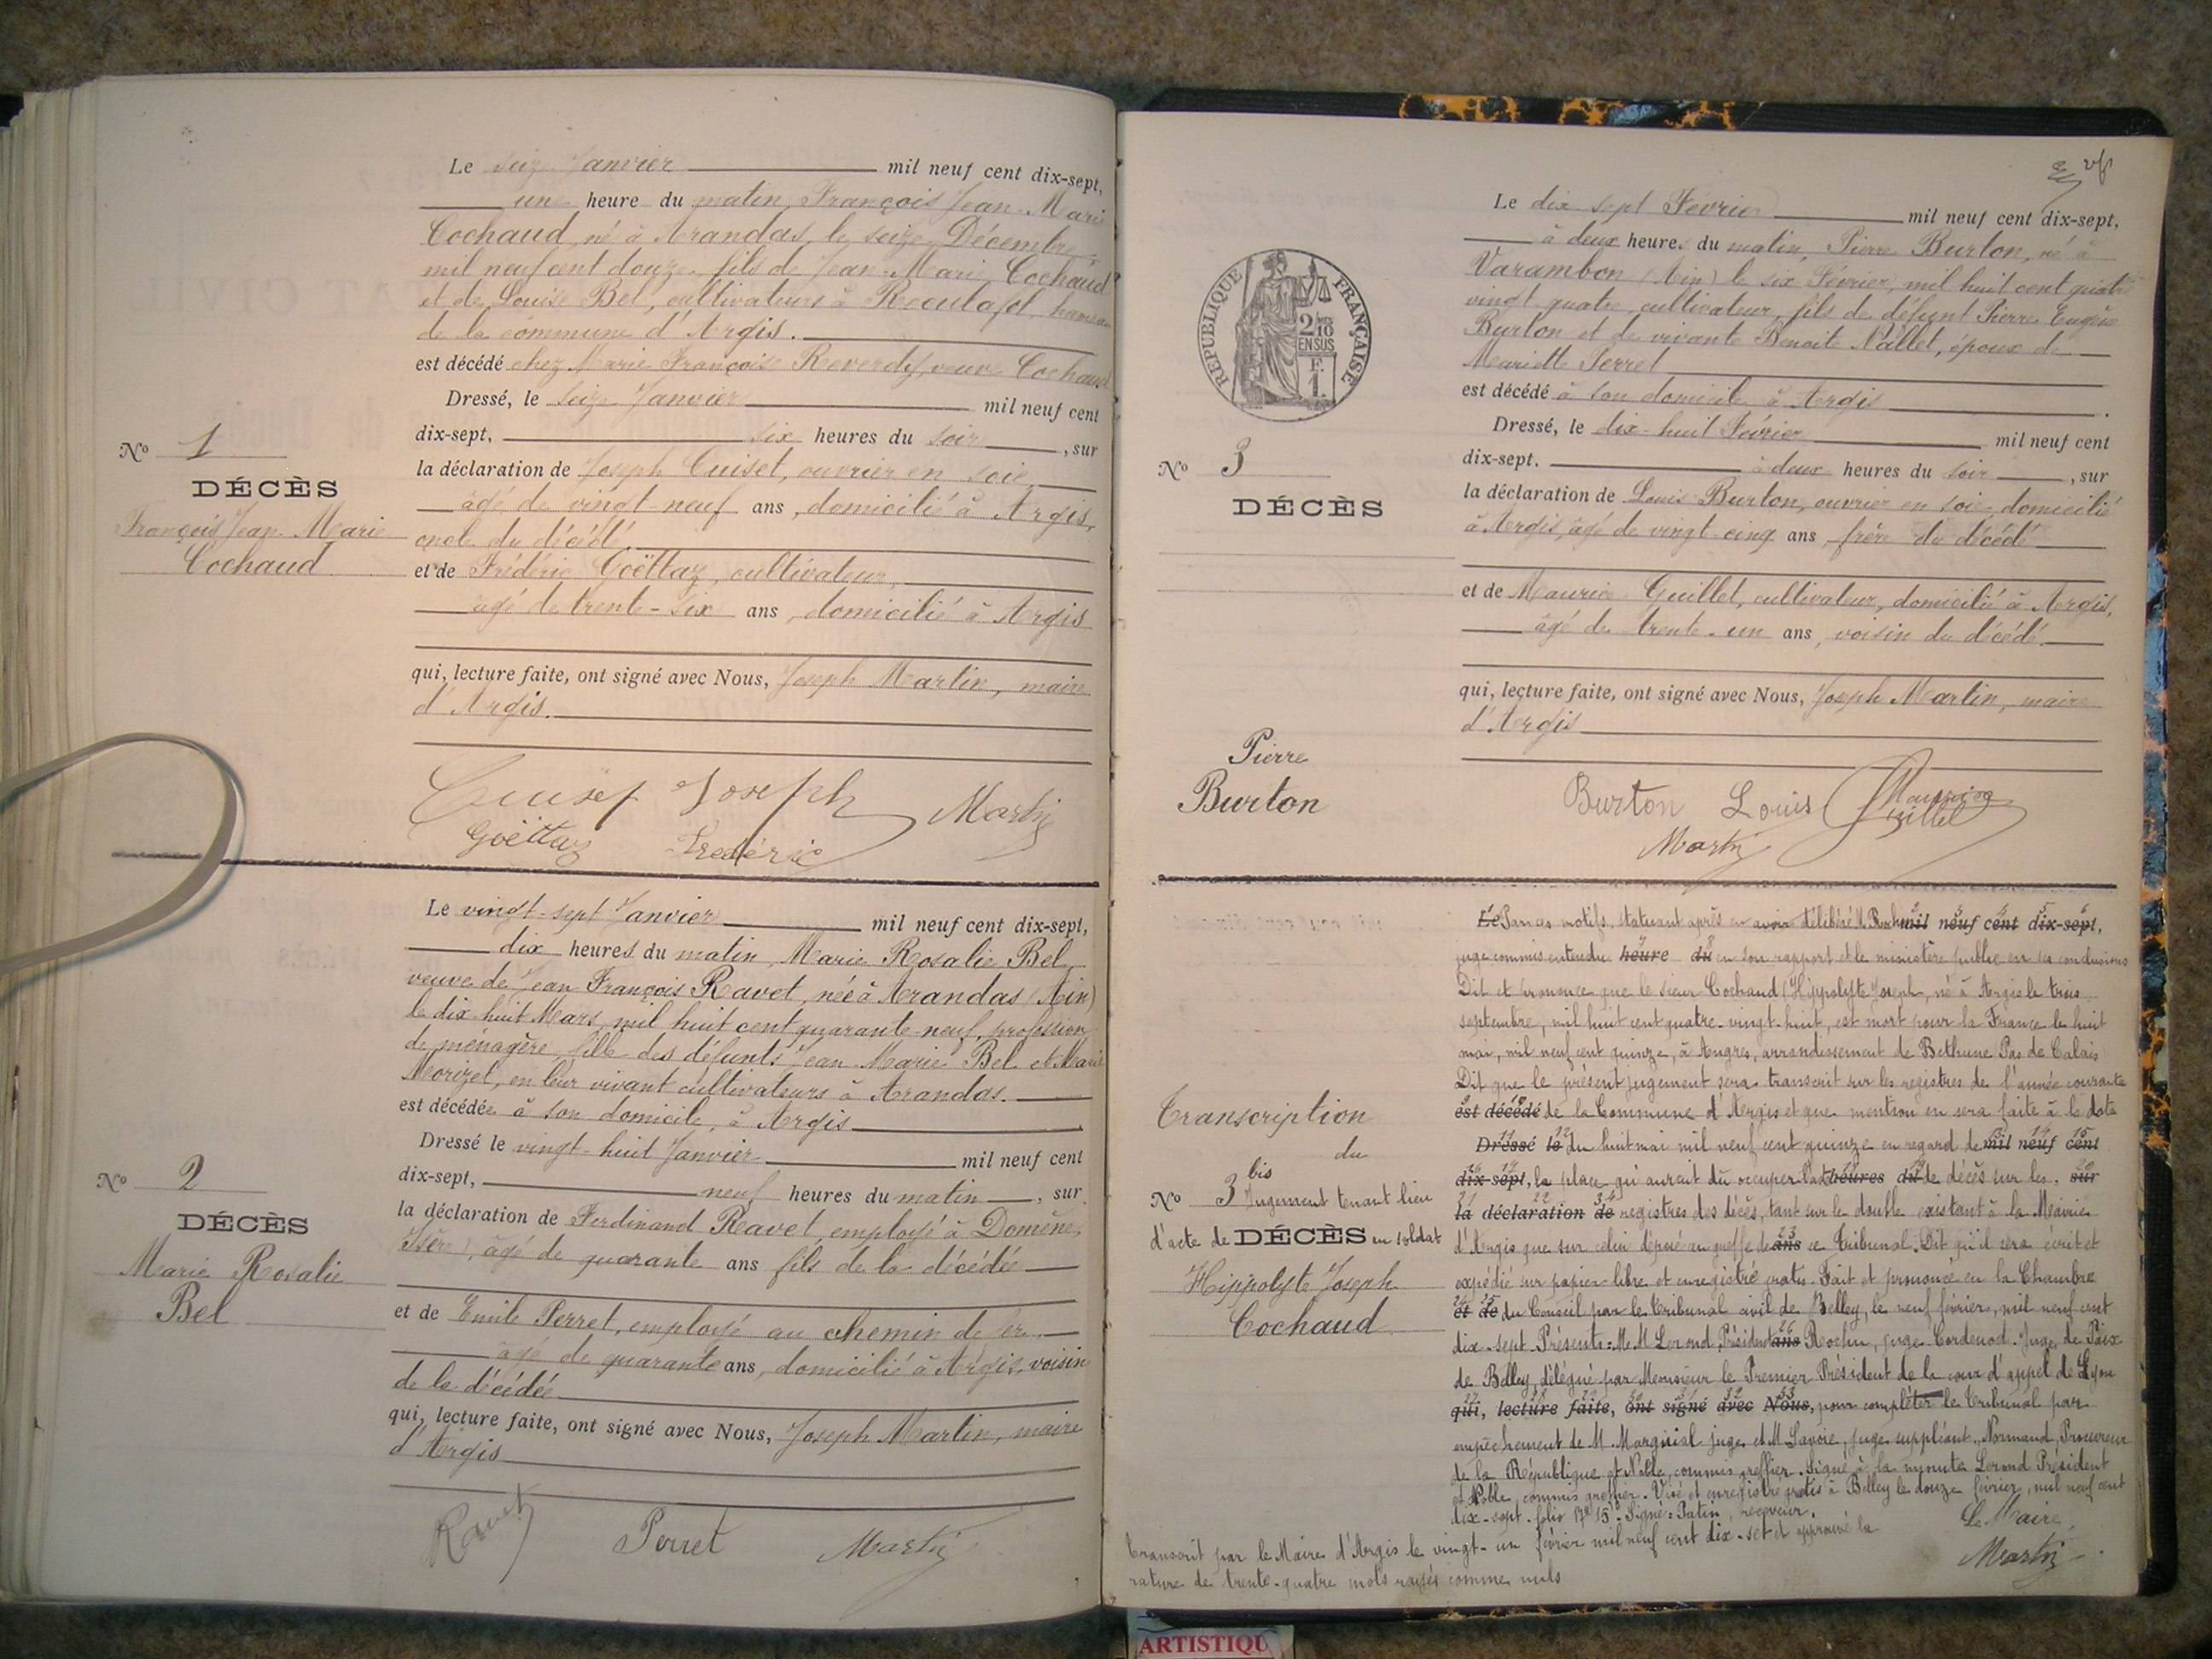 Le seize Janvier mil neuf cent dix-sept,
une heure du matin, François Jean-Marie
Cochaud, né à Arandas, le seize Décembre
mil neuf cent douze, fils de Jean-Marie Cochaud
et de Louise Bel, cultivateurs à Reculafol, hameau
de la commune d'Argis.
est décédé chez Marie Françoise Reverdy, veuve Cochaud
Dressé, le seize Janvier mil neuf cent
dix-sept, six heures du soir, sur
la déclaration de Joseph Cuiset, ouvrier en soie,
âgé de vingt-neuf ans, domicilié à Argis,
oncle du décédé
et de Frédéric Goëttaz, cultivateur,
âgé de trente-six ans, domicilié à Argis
qui, lecture faite, ont signé avec Nous, Joseph Martin, maire
d'Argis.
No 1
DÉCÈS
François Jean-Marie
Cochaud
Cuiset Joseph Martin
Goëttaz Frédéric
Le vingt-sept Janvier mil neuf cent dix-sept,
dix heures du matin, Marie Rosalie Bel
veuve de Jean François Ravet, née à Arandas (Ain)
le dix-huit Mars, mil huit cent quarante-neuf, profession
de ménagère, fille des défunts Jean-Marie Bel et Marie
Morizet, en leur vivant cultivateurs à Arandas.
est décédée à son domicile, à Argis
Dressé le vingt-huit Janvier mil neuf cent
dix-sept, neuf heures du matin, sur
la déclaration de Ferdinand Ravet, employé à Domène
(Isère), âgé de quarante ans fils de la décédée
et de Emile Perret, employé au chemin de fer
âgé de quarante ans, domicilié à Argis, voisin
de la décédée
qui, lecture faite, ont signé avec Nous, Joseph Martin, maire
d'Argis
No 2
DÉCÈS
Marie Rosalie
Bel
Ravet Perret Martin
Le dix sept Février mil neuf cent dix-sept,
à deux heures du matin, Pierre Burton, né à
Varambon (Ain) le six Février, mil huit cent quatre
vingt quatre, cultivateur, fils de défunt Pierre Eugène
Burton et de vivante Benoite Nallet, époux de
Mariette Perret
est décédé à son domicile à Argis.
Dressé, le dix-huit Février mil neuf cent
dix-sept. à deux heures du soir, sur
la déclaration de Louis Burton, ouvrier en soie, domicilié
à Argis, âgé de vingt cinq ans, frère du décédé
et de Maurice Guillet, cultivateur, domicilié à Argis,
âgé de trente-un ans, voisin du décédé
qui, lecture faite, ont signé avec Nous, Joseph Martin, maire
d'Argis
RÉPUBLIQUE FRANÇAISE
2/10
EN SUS
F.
1.
No 3
DÉCÈS
Pierre
Burton
Burton Louis Maurice
Guillet
Martin
Le Par ces motifs, statuant après en avoir délibéré M. Rochu mil neuf cent dix-sept,
juge commis entendu heure du en son rapport et le ministère public en ses conclusions
Dit et prononce que le sieur Cochaud (Hippolyte Joseph, né à Argis le trois
septembre, mil huit cent quatre-vingt-huit, est mort pour la France le huit
mai, mil neuf cent quinze, à Angres, arrondissement de Bethune Pas de Calais
Dit que le présent jugement sera transcrit sur les registres de l'année courante
est décédé de la Commune d'Argis et que mention en sera faite à la date
Dressé le du huit mai mil neuf cent quinze en regard de mil neuf cent
dix-sept, la place qu'aurait dû occuper l'acte heures du de décès sur les, sur
la déclaration de registres des décès, tant sur le double existant à la Mairie
d'Argis que sur celui déposé au greffe de ans ce Tribunal. Dit qu'il sera écrit et
expédié sur papier libre et enregistré gratis. Fait et prononcé en la Chambre
et de du Conseil par le Tribunal civil de Belley, le neuf février, mil neuf cent
dix-sept Présents: M. M. Lerond, Président ans Rochu, juge Cordenod. Juge de Paix
de Belley, délégué par Monsieur le Premier Président de la cour d'appel de Lyon
qui, lecture faite, ont signé avec Nous, pour compléter le Tribunal par
empêchement de M. juge et M. Savoie, juge suppléant, Normand, Procureur
de la République et Noble, commis greffier. Signé à la minute Lerond Président
et Noble, commis greffier. Visé et enregistré gratis à Belley le douze février, mil neuf cent
dix-sept. folio Signé: Patin, receveur.
Transcrit par le Maire d'Argis le vingt-un février mil neuf cent dix-sept et approuvé la
rature de trente-quatre mots rayés comme nuls
Le Maire,
Martin
Transcription
du
No 3 bis Jugement tenant lieu
d'acte de DÉCÈS du soldat
Hippolyte Joseph
Cochaud
ARTISTIQU